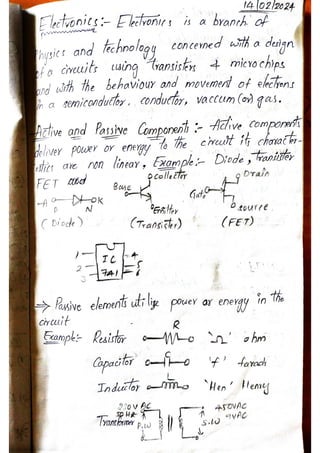 14/02/2024
Electronics :- Electronics is a branch of
Physics and technology concerned with a design
of a circuits using transistors & microchips
and with the behaviour and movement of electrons
in a semiconductor, conductor, vaccum (or) gas.
Active and Passive Components :- Active components
deliver power or energy to the circuit its character-
istics are non linear, Example:- Diode, Transistor
FET and
collector Drain
Base Gate
A K
P N Emitter source
(Diode) (Transistor) (FET)
1 IC 4
2 741 5
3 6
⇒ Passive elements utilize power or energy in the
circuit
R
Example:- Resistor 'Ω' ohm
C
Capacitor 'f' farach
L
Inductor 'Hen' Henry
220V AC 450VAC
50Hz 9VAC
Transformer P.W S.W